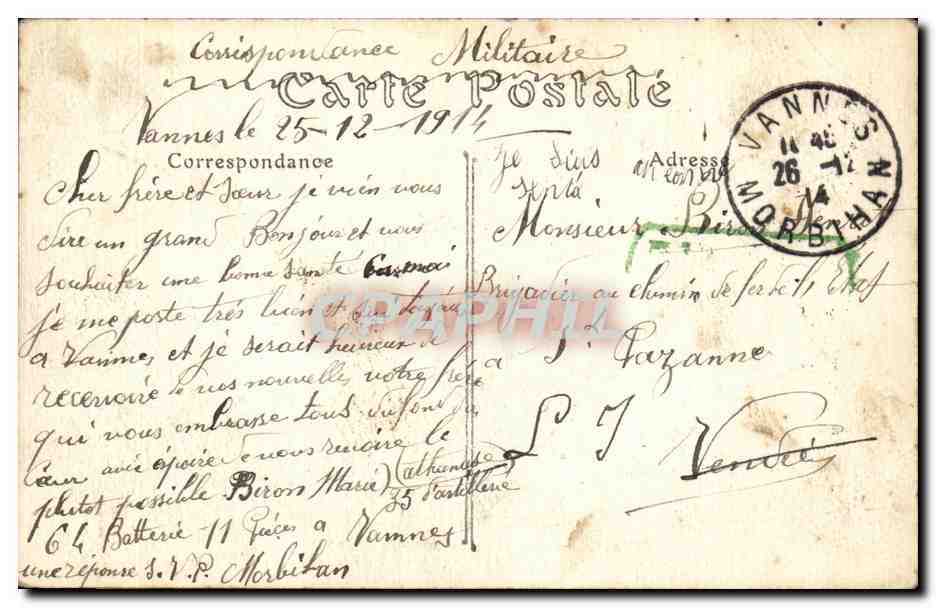 Correspondance Militaire
Carte Postale
Vannes le 25-12-1914
Correspondance
Cher frère et sœur je vien vous
dire un grand Bonjour et vous
souhaiter une bonne sante
je me porte très bien et toujour
a Vannes et je serait heureux de
recevoire vos nouvelles votre frère
qui vous embrasse tous du fond du
cœur avec époire de vous revoire le
plutot possible Biron Marie (athanase)
35 d'artillerie
64 Batterie 11 Pièces a Vannes
une réponse S.V.P. Morbihan
Je suis
Adresse
Monsieur Biron
Brigadier au chemin de fer de l'Etat
a St Pazanne
L I
Vendée
VANNES
11 45
26 -12
14
MORBIHAN
CPAPHIL